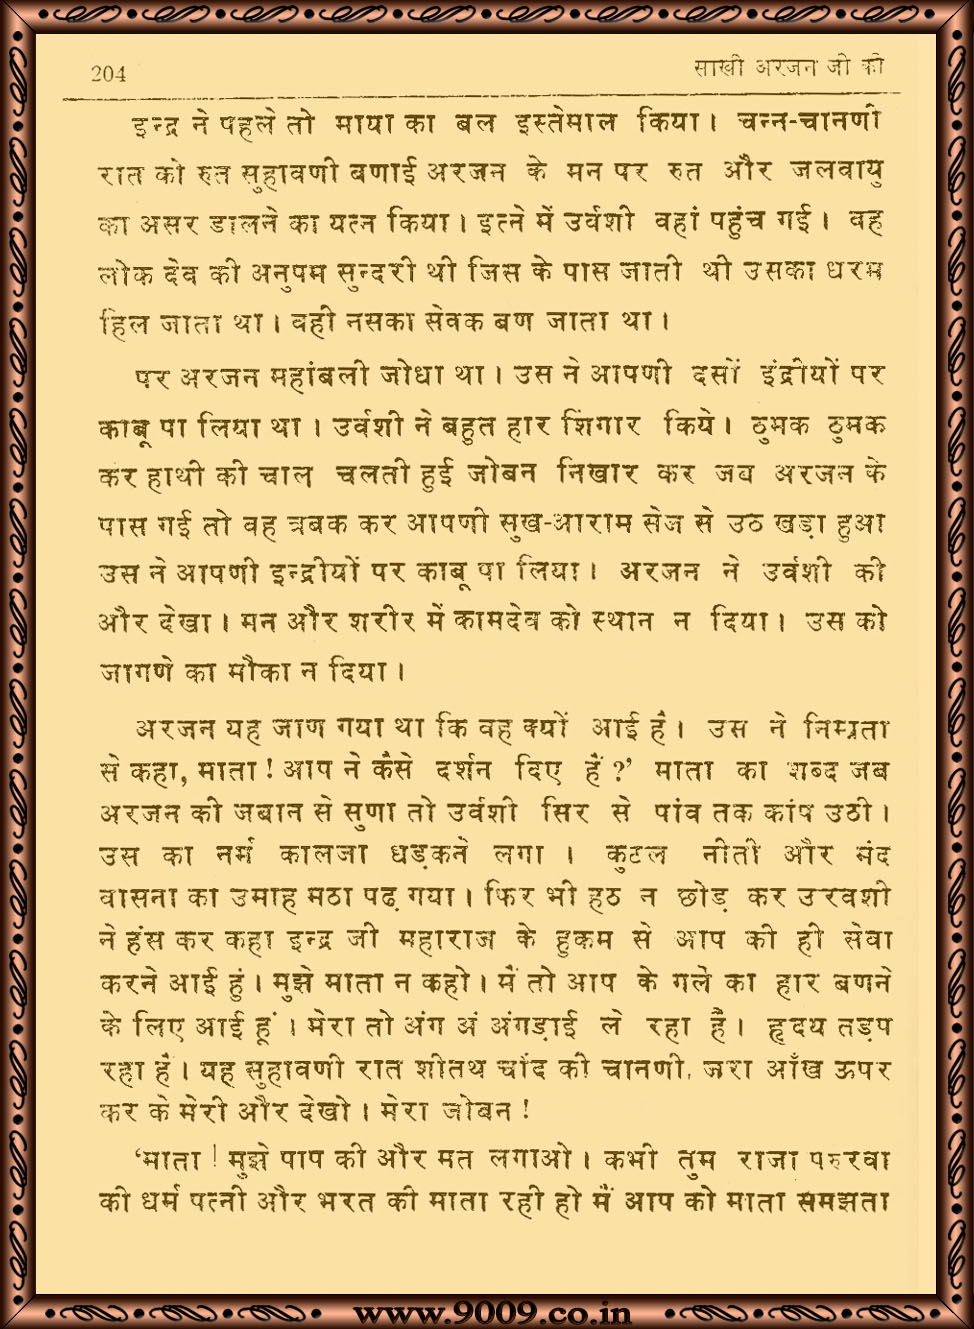 204
साखी अरजन जी की
इन्द्र ने पहले तो माया का बल इस्तेमाल किया। चन्न-चानणी
रात को रुत सुहावणी बणाई अरजन के मन पर रुत और जलवायु
का असर डालने का यत्न किया। इत्ने में उर्वशी वहां पहुंच गई। वह
लोक देव की अनुपम सुन्दरी थी जिस के पास जाती थी उसका धरम
हिल जाता था। वही नसका सेवक बण जाता था।
पर अरजन महांबली जोधा था। उस ने आपणी दसों इंद्रीयों पर
काबू पा लिया था। उर्वशी ने बहुत हार शिंगार किये। ठुमक ठुमक
कर हाथी की चाल चलती हुई जोबन निखार कर जब अरजन के
पास गई तो वह त्रबक कर आपणी सुख-आराम सेज से उठ खड़ा हुआ
उस ने आपणी इन्द्रीयों पर काबू पा लिया। अरजन ने उर्वशी की
और देखा। मन और शरीर में कामदेव को स्थान न दिया। उस को
जागणे का मौका न दिया।
अरजन यह जाण गया था कि वह क्यों आई है। उस ने निम्रता
से कहा, माता! आप ने कैसे दर्शन दिए हैं?’ माता का शब्द जब
अरजन की जबान से सुणा तो उर्वशी सिर से पांव तक कांप उठी।
उस का नर्म कालजा धड़कने लगा । कुटल नीती और मंद
वासना का उमाह मठा पढ़ गया। फिर भी हठ न छोड़ कर उरवशी
ने हंस कर कहा इन्द्र जी महाराज के हुकम से आप की ही सेवा
करने आई हुं। मुझे माता न कहो। मैं तो आप के गले का हार बणने
के लिए आई हूं । मेरा तो अंग अं अंगड़ाई ले रहा है। हृदय तड़प
रहा है। यह सुहावणी रात शीतथ चाँद की चानणी, जरा आँख ऊपर
कर के मेरी और देखो। मेरा जोबन!
‘माता! मुझे पाप की और मत लगाओ। कभी तुम राजा परुरवा
की धर्म पत्नी और भरत की माता रही हो मैं आप को माता समझता
www.9009.co.in